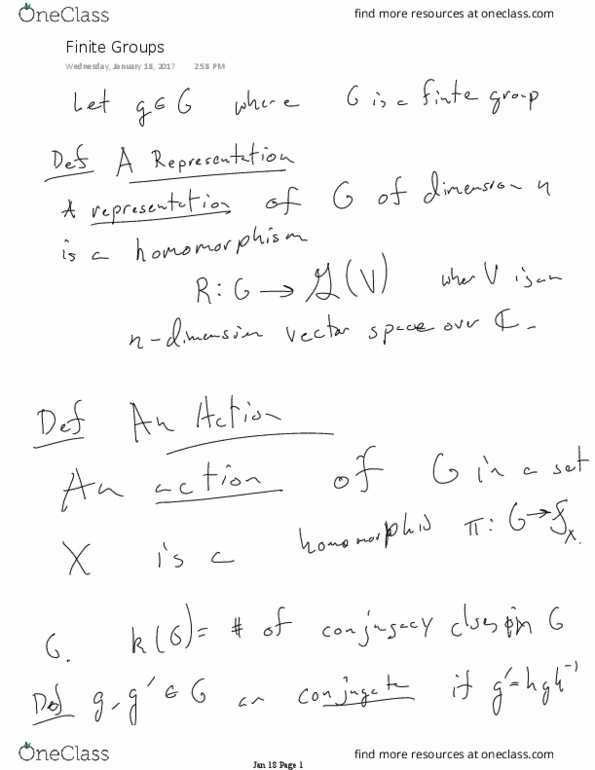 OneClass find more resources at oneclass.com
Finite Groups
Wednesday, January 18, 2017 2:58 PM
Let g ∈ G where G is a finte group
Def A Representation
A representation of G of dimension n
is a homomorphism
R: G → GL(V) wher V is an
n-dimension vector space over ℂ.
Def An Action
An action of G in a set
X is a homomorphis π: G → S_X.
G. k(G) = # of conjugacy clases in G
Def g, g' ∈ G an conjugate if g' = hgh⁻¹
OneClass find more resources at oneclass.com
Jan 18 Page 1